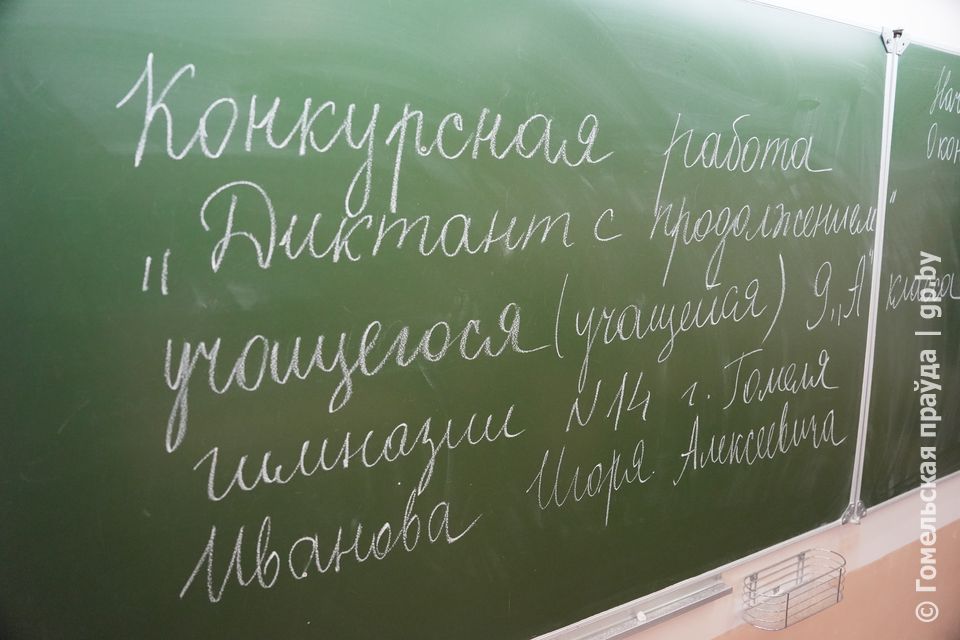 Конкурсная работа
„Диктант с продолжением“
учащегося (учащейся) 9 „А“ класса
гимназии N 14 г. Гомеля
Иванова Игоря Алексеевича
© Гомельская праўда | gp.by